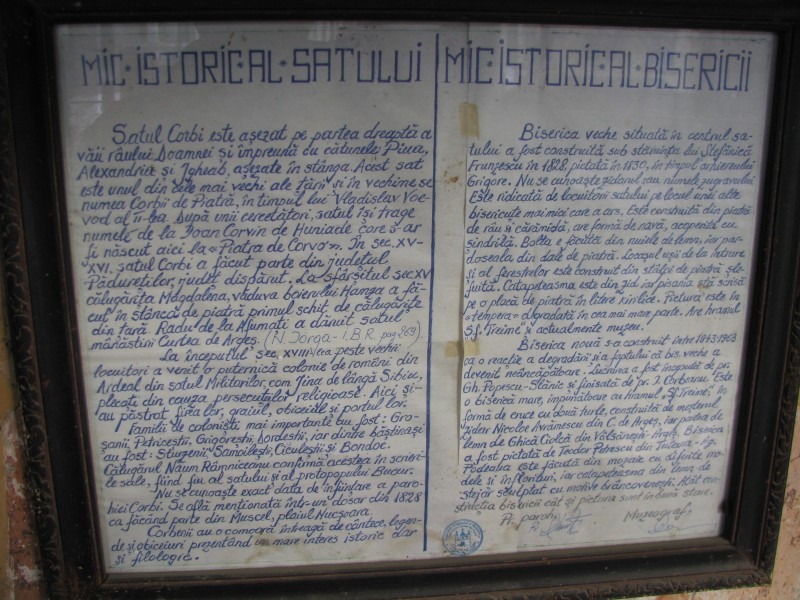 MIC·ISTORIC·AL·SATULUI
Satul Corbi este așezat pe partea dreaptă a
văii râului Doamnei și împreună cu cătunele Piua,
Alexandria și Igheab, așezate în stânga. Acest sat
este unul din cele mai vechi ale țării și în vechime se
numea Corbii de Piatră, în timpul lui Vladislav Voe-
vod al II-lea. După unii cercetători, satul își trage
numele de la Ioan Corvin de Huniade care s-ar
fi născut aici la «Piatra de Corvo». În sec. XV-
XVI. satul Corbi a făcut parte din județul
Pădureților, județ dispărut. La sfârșitul sec XV
călugărița Magdalina, văduva boierului Hamza a fă-
cut în stânca de piatră primul schit de călugărițe
din țară. Radu de la Afumați a dăruit satul
mânăstirii Curtea de Argeș. (N. Iorga - I.B.R. pag 269)
La începutul sec. XVIII-lea peste vechii
locuitori a venit o puternică colonie de români din
Ardeal din satul Militarilor, com. Jina de lângă Sibiu,
plecați din cauza persecuțiilor religioase. Aici și-
au păstrat firea lor, graiul, obiceiul și portul lor.
Familii de coloniști mai importante au fost: Gro-
șanii, Petriceștii, Grigoreștii, Dordeștii, iar dintre băștinași
au fost: Sturgenii, Samoileștii, Ciculeștii și Bondoc.
Călugărul Naum Râmniceanu confirmă acestea în scrieri-
le sale, fiind fiu al satului și al protopopului Bucur.
Nu se cunoaște exact data de înființare a paro-
hiei Corbi. Se află menționată într-un dosar din 1828
ca făcând parte din Muscel, plaiul Nucșoara.
Corbenii au o comoară întreagă de cântece, legen-
de și obiceiuri prezentând un mare interes istoric dar
și filologic.
MIC·ISTORIC·AL·BISERICII
Biserica veche situată în centrul sa-
tului a fost construită sub stăruința lui Ștefănică
Frunzescu în 1828, pictată în 1830, în timpul arhiereului
Grigore. Nu se cunoaște zidarul sau numele zugravului
Este ridicată de locuitorii satului pe locul unei alte
bisericuțe mai mici care a ars. Este construită din piatră
de râu și cărămidă, are formă de navă, acoperită cu
șindrilă. Bolta e făcută din nuiele de lemn, iar par-
doseala din dale de piatră. Locașul ușii de la intrare
și al ferestrelor este construit din stâlpi de piatră șle-
fuită. Catapeteasma este din zid, iar pisania stă scrisă
pe o placă de piatră în litere kirilice. Pictura este în
«tempera» degradată în cea mai mare parte. Are hramul
Sf. Treime", e actualmente muzeu.
Biserica nouă s-a construit între
ca o reacție a degradării și a faptului că bis. veche a
devenit neîncăpătoare. Lucrarea a fost începută de pr.
Gh. Popescu-Slănic și finisată de pr. I. Corbeanu. Este
o biserică mare, impunătoare cu hramul „Sf. Treime", în
formă de cruce cu două turle, construită de meșterul
zidar Nicolae Avrămescu din C. de Argeș, iar partea de
lemn de Ghică Ciolcă din Vâlsănești-Argeș. Biserica
a fost pictată de Teodor Petrescu din
Podeaua este făcută din mozaic cu diferite mo-
dele și înflorituri, iar catapeteasma din lemn de
stejar sculptat cu motive brâncovenești. Atât con-
strucția bisericii cât și pictura sunt în bună stare.
Pr. paroh, Muzeograf,